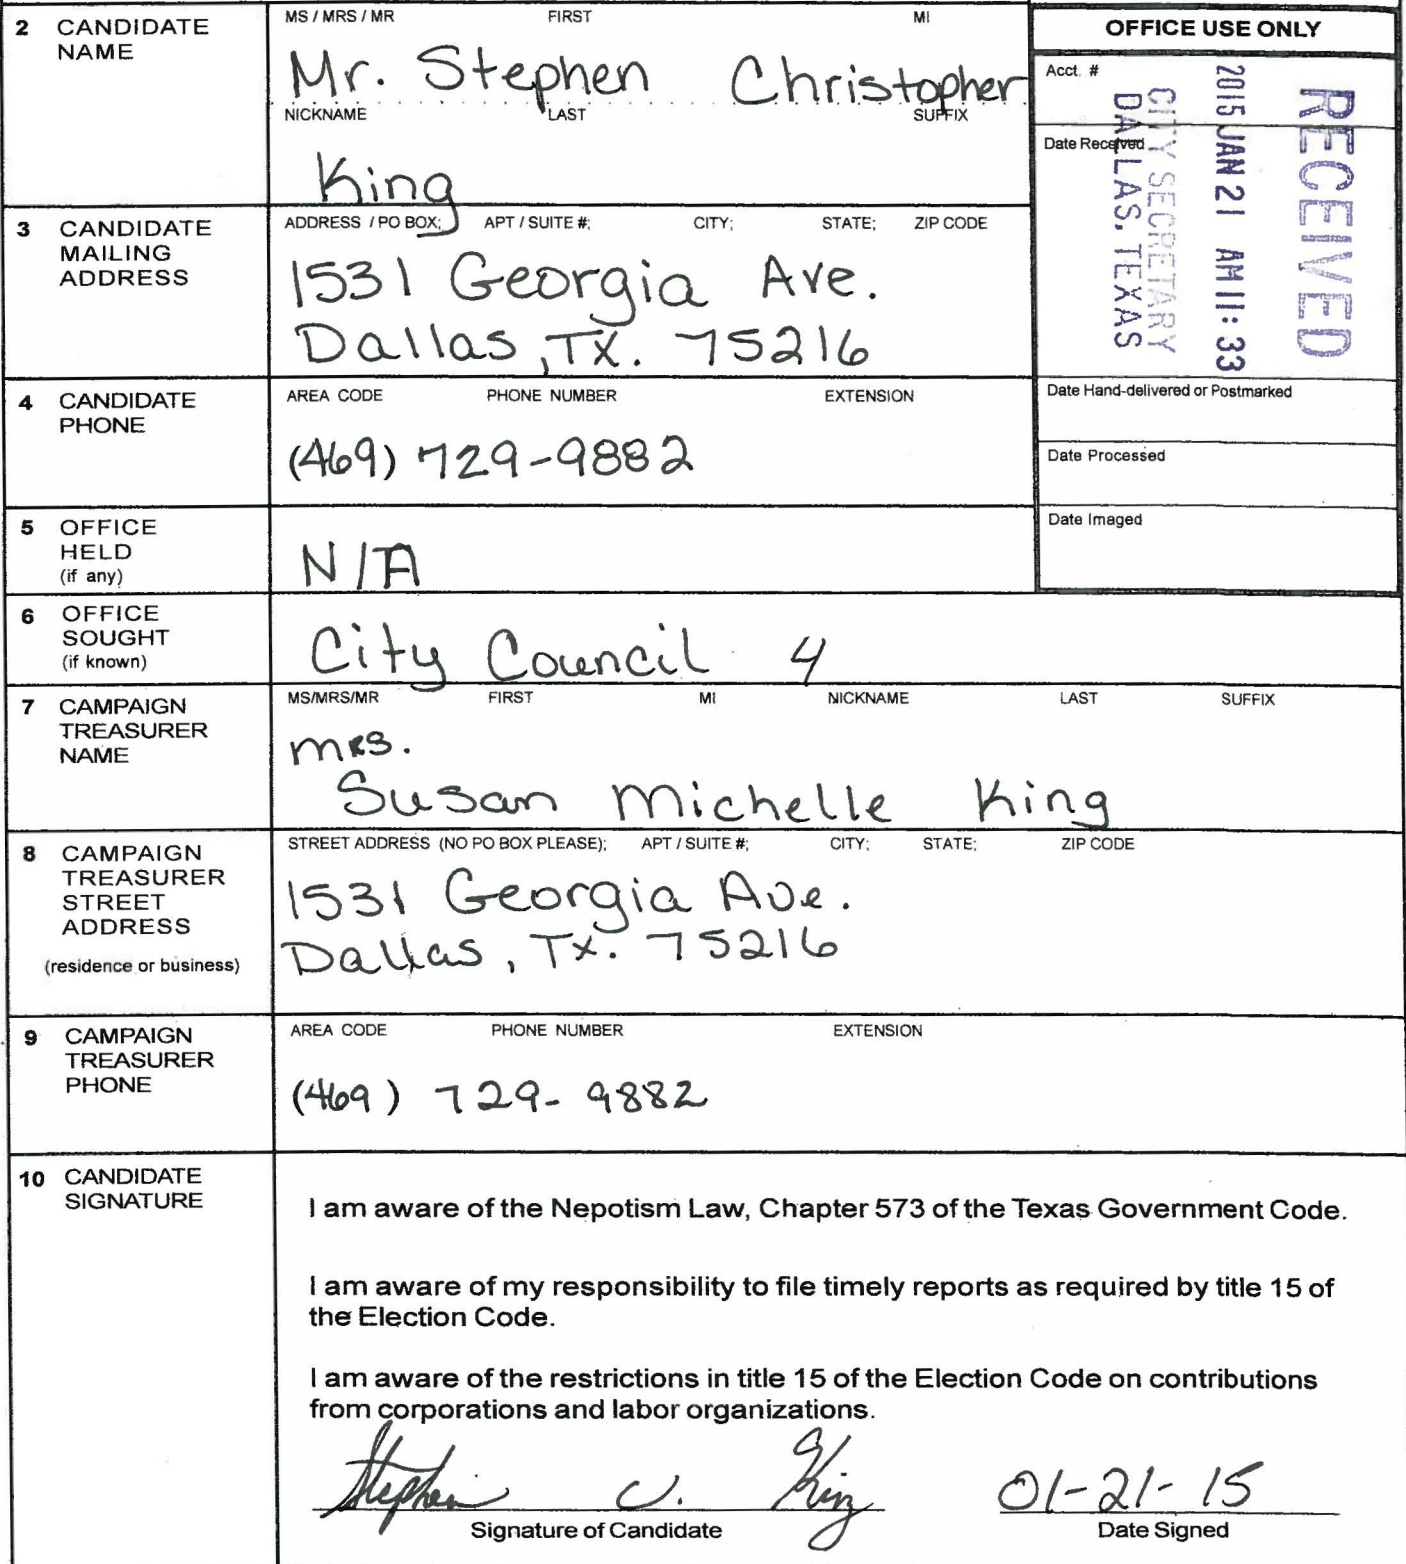 2 CANDIDATE NAME
MS / MRS / MR FIRST MI
Mr. Stephen Christopher
NICKNAME LAST SUFFIX
King
OFFICE USE ONLY
Acct. #
Date Received
RECEIVED
2015 JAN 21 AM 11:33
CITY SECRETARY
DALLAS, TEXAS
Date Hand-delivered or Postmarked
Date Processed
Date Imaged
3 CANDIDATE MAILING ADDRESS
ADDRESS / PO BOX; APT / SUITE #; CITY; STATE; ZIP CODE
1531 Georgia Ave.
Dallas, TX. 75216
4 CANDIDATE PHONE
AREA CODE PHONE NUMBER EXTENSION
(469) 729-9882
5 OFFICE HELD (if any)
N/A
6 OFFICE SOUGHT (if known)
City Council 4
7 CAMPAIGN TREASURER NAME
MS/MRS/MR FIRST MI NICKNAME LAST SUFFIX
mrs.
Susan Michelle King
8 CAMPAIGN TREASURER STREET ADDRESS
(residence or business)
STREET ADDRESS (NO PO BOX PLEASE); APT / SUITE #; CITY; STATE; ZIP CODE
1531 Georgia Ave.
Dallas, Tx. 75216
9 CAMPAIGN TREASURER PHONE
AREA CODE PHONE NUMBER EXTENSION
(469) 729-9882
10 CANDIDATE SIGNATURE
I am aware of the Nepotism Law, Chapter 573 of the Texas Government Code.
I am aware of my responsibility to file timely reports as required by title 15 of
the Election Code.
I am aware of the restrictions in title 15 of the Election Code on contributions
from corporations and labor organizations.
Stephen C. King 01-21-15
Signature of Candidate Date Signed